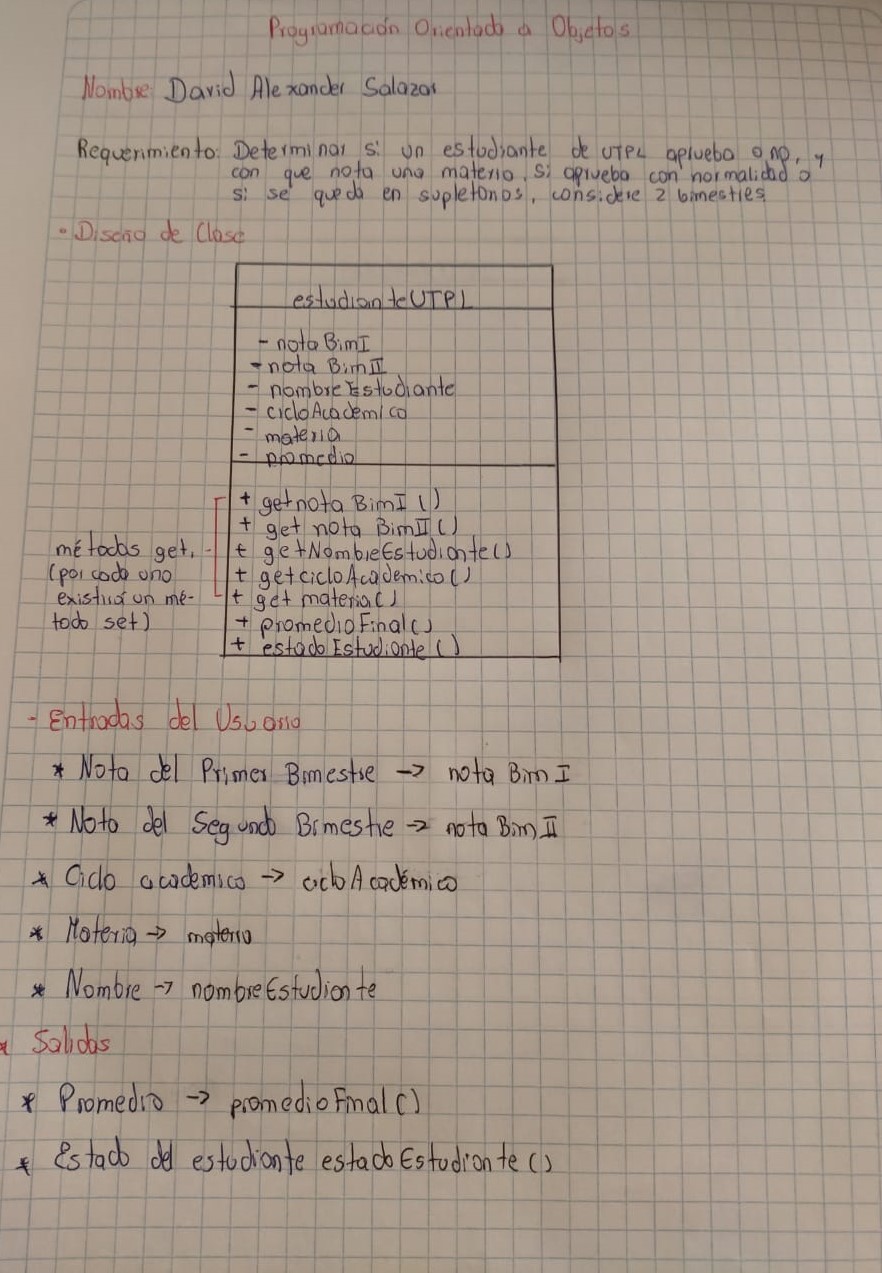 Programación Orientado a Objetos
Nombre: David Alexander Salazar
Requerimiento: Determinar si un estudiante de UTPL aprueba o no, y
con que nota una materia, si aprueba con normalidad o
si se queda en supletorios, considere 2 bimestres
• Diseño de Clase
estudianteUTPL
- notaBimI
- nota BimII
- nombreEstudiante
- cicloAcademico
- materia
- promedio
+ getnota BimI ()
+ get nota BimII ()
+ getNombreEstudiante()
+ getcicloAcademico()
+ get materia()
+ promedioFinal()
+ estadoEstudiante ()
métodos get,
(por cada uno
existirá un mé-
todo set)
- Entradas del Usuario
* Nota del Primer Bimestre → nota Bim I
* Nota del Segundo Bimestre → nota Bim II
* Ciclo academico → cicloAcadémico
* Materia → materia
* Nombre → nombreEstudiante
* Salidas
* Promedio → promedioFinal()
* Estado del estudiante estadoEstudiante ()